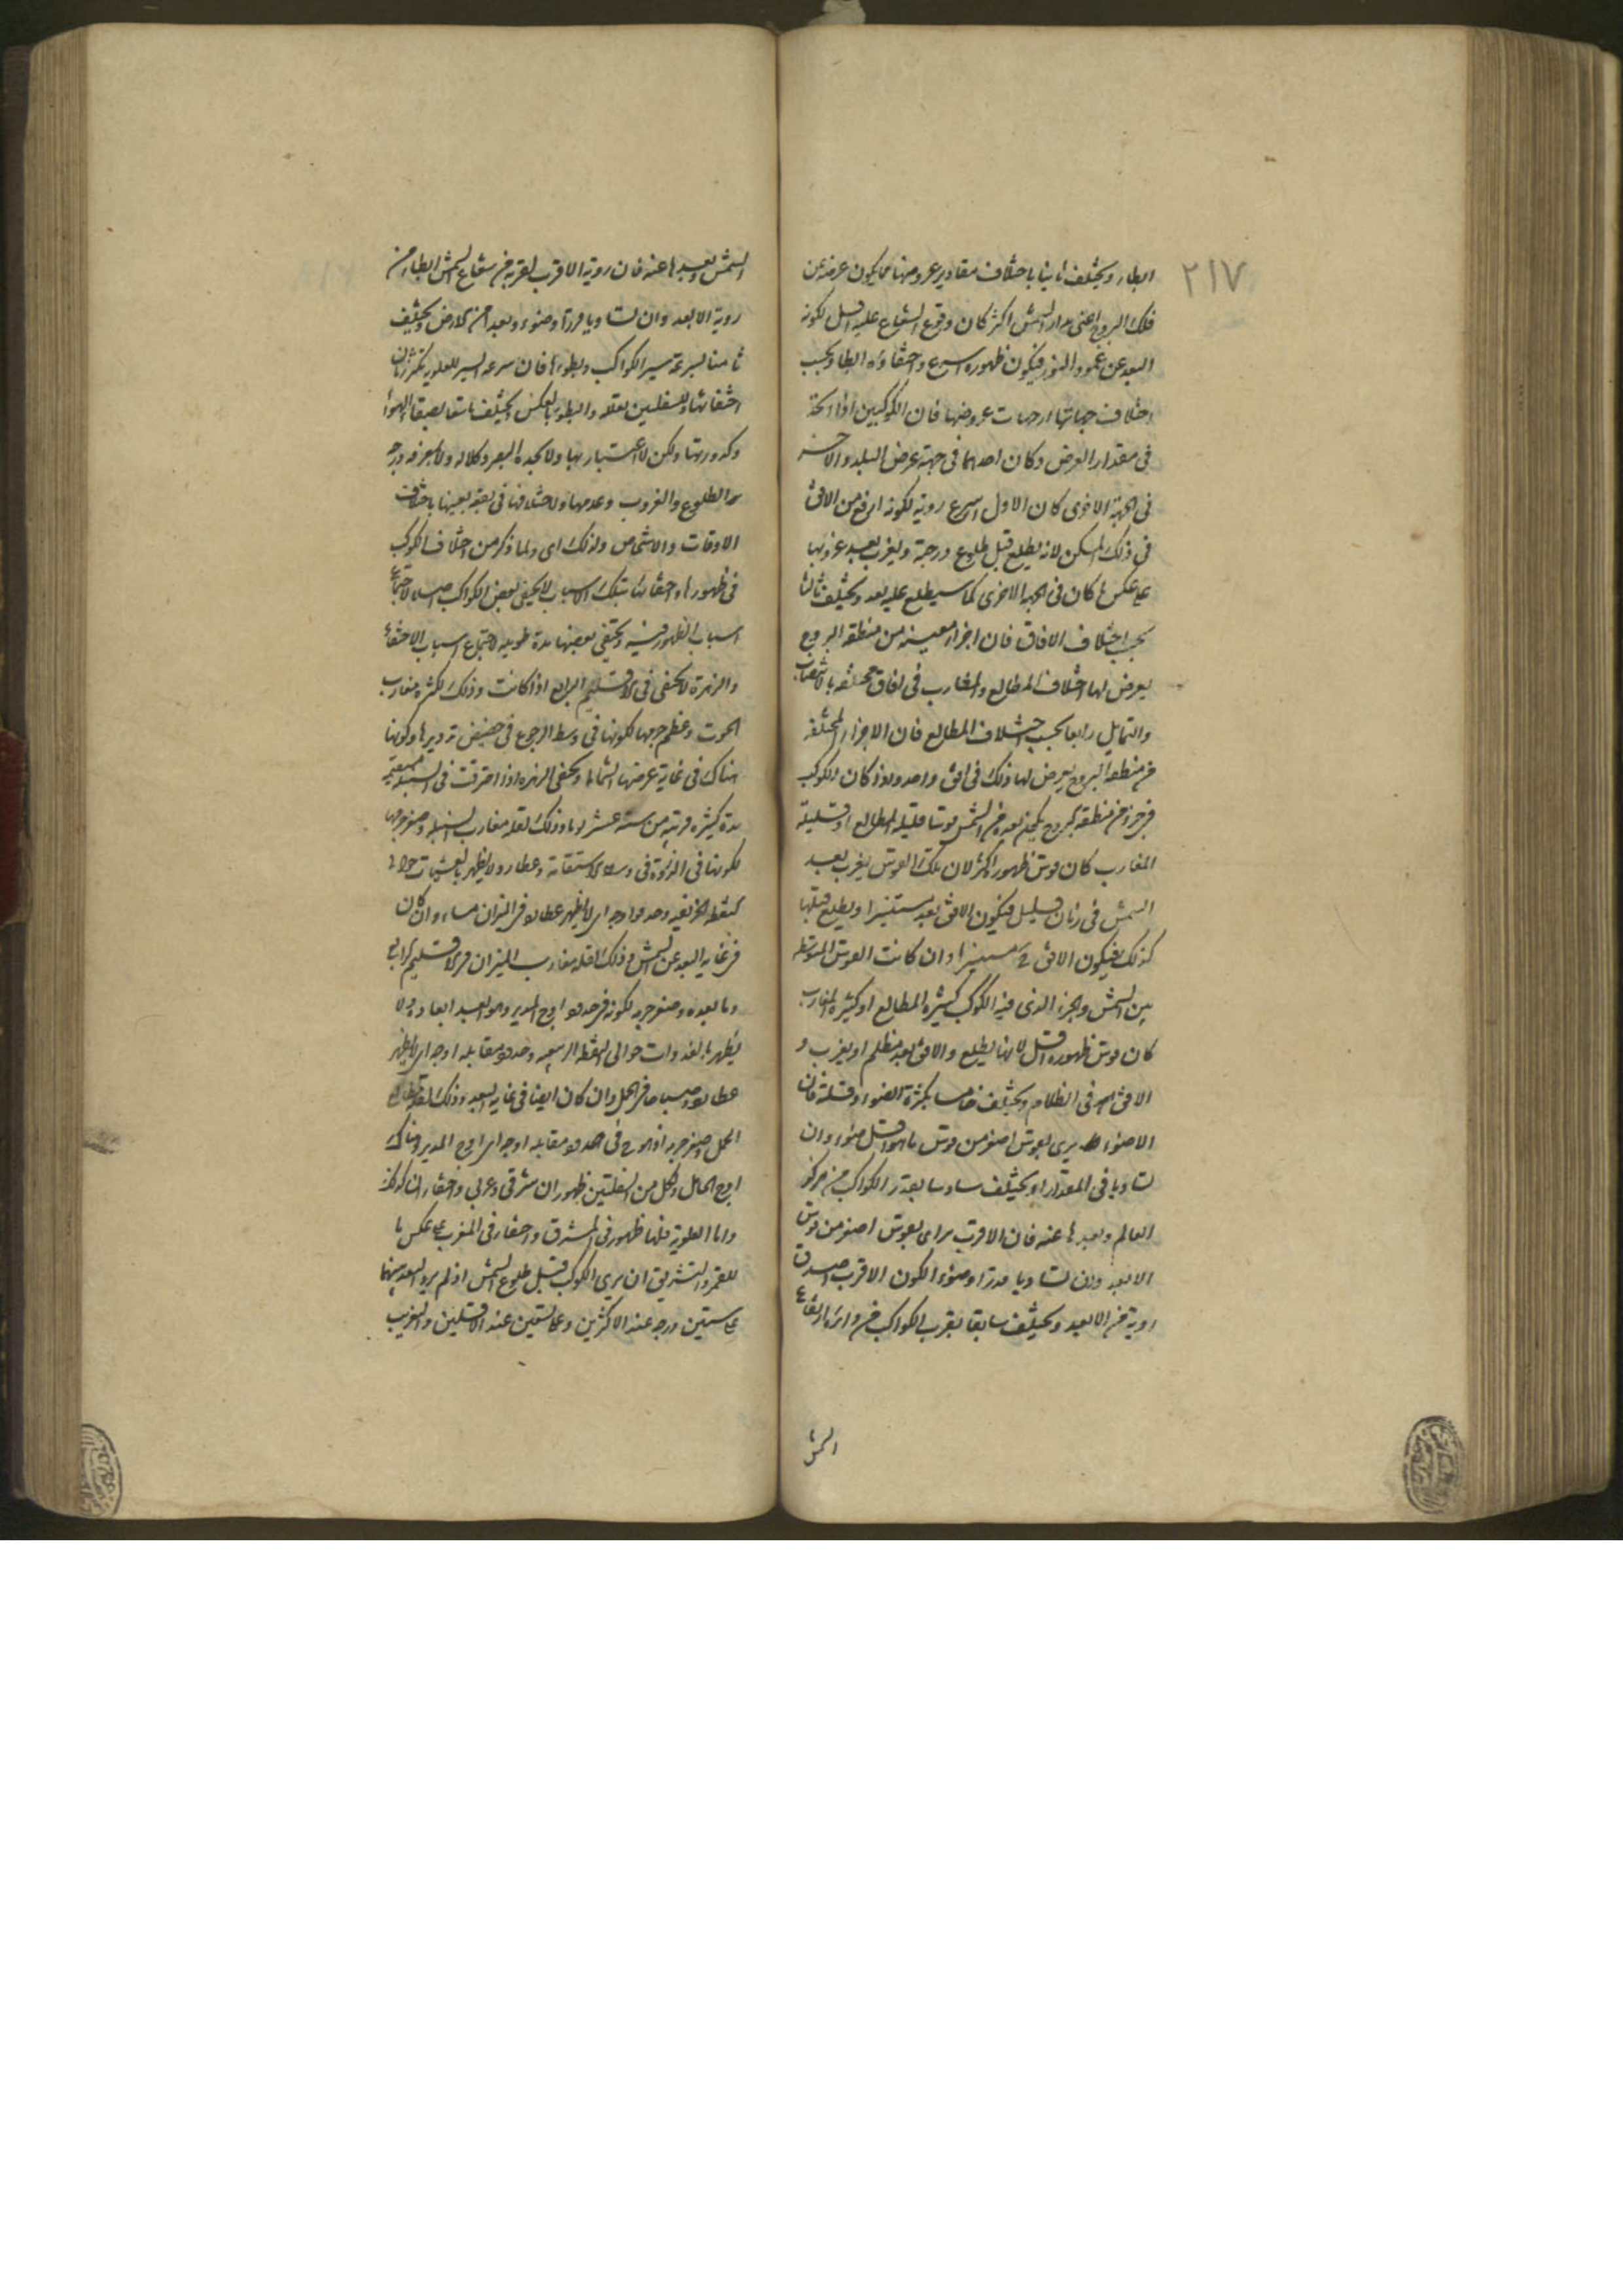 ٢١٧
ابطاء ويختلف ثانيا باختلاف مقادير عروضها مما يكون عرضه عن
فلك البروج اعنى مدار الشمس اكثر كان وقوع الشعاع عليه اقل لكونه
البعد عن عمود النور فيكون ظهوره اسرع واختفاؤه ابطا وبحسب
اختلاف جهاتها اى جهات عروضها فان الكوكبين اذا اتحدا
فى مقدار العرض وكان احدهما فى جهة عرض البلد والاخر
فى الجهة الاخرى كان الاول اسرع روية لكونه ارفع من الافق
فى ذلك المسكن لانه يطلع قبل طلوع درجة ويغرب بعد غروبها
على عكس ما كان فى الجهة الاخرى كما سيطلع عليه بعد ويختلف ثالثا
بحسب اختلاف الافاق فان اجزاء معينه من منطقه البروج
يعرض لها اختلاف المطالع والمغارب فى افاق مختلفه بالانتصاب
والتمايل رابعا بحسب اختلاف المطالع فان الاجزاء المختلفه
من منطقه البروج يعرض لها ذلك فى افق واحد واذا كان الكوكب
فى جزء من منطقه البروج بعده من الشمس قوسا قليلة المطالع او قليلة
المغارب كان قوس ظهوره اكثر لان تلك القوس يغرب بعد
الشمس فى زمان قليل فيكون الافق بعد مستنيرا ويطلع قبلها
كذلك فيكون الافق ح مستنيرا وان كانت القوس المتوسطه
بين الشمس والجزء الذى فيه الكوكب كثيرة المطالع او كثيرة المغارب
كان قوس ظهوره اقل لانها يطلع والافق بعد مظلم او يغرب و
الافق فى الظلام ويختلف خامسا بكثرة الضوء وقلته فان
الاضواء يرى بقوس اصغر من قوس ما هو اقل ضوء وان
تساويا فى المقدار ويختلف سادسا بقدر الكواكب من مركز
العالم وبعدها عنه فان الاقرب يراى بقوس اصغر من قوس
الابعد وان تساويا قدرا وضوء لكون الاقرب اصدق
روية من الابعد ويختلف سابعا بقرب الكواكب من دائرة ارتفاع
الشمس
الشمس وبعدها عنه فان روية الاقرب لقربه من شعاع الشمس ابطا من
روية الابعد وان تساويا قدرا وضوء وبعدا من الارض ويختلف
ثامنا بسرعة سير الكواكب وبطوءها فان سرعه السير للعلويه يكثر زمان
اختفائها وللسفليين يقلله والبطوء بالعكس ويختلف تاسعا بصفا الهواء
وكدورتها ولكن لا اعتبار بها ولا بحدة البصر وكلاله ولا بمعرفة درجه
الطلوع والغروب وعدمها ولاختلافها فى بقعه بعينها باختلاف
الاوقات والاشخاص ولذلك اى ولما ذكر من اختلاف الكواكب
فى ظهورها واختفائها بتلك الاسباب لا يختفى بعض الكواكب اصلا لاجتماع
اسباب الظهور فيه ويختفى بعضها مدة طويله لاجتماع اسباب الاختفاء
والزهرة لا تختفى فى الاقليم الرابع اذا كانت وذلك لكثره مغارب
الحوت وعظم جرمها لكونها فى وسط الرجوع فى حضيض تدويرها وكونها
هناك فى غاية عرضها الشمالى ويختفى الزهره اذا احترقت فى السنبله مستقيمه
مدة كثيره قريبه من ستة عشر يوما وذلك لقله مغارب السنبله وصغر جرمها
لكونها فى الذروة فى وسط الاستقامة وعطارد لا يظهر بالعشيات حوالى
نقطه الخريفيه وحد هو اوجه اى لا يظهر عطارد فى الميزان مساء وان كان
فى غاية البعد عن الشمس وذلك لقله مغارب الميزان فى الاقليم الرابع
وما بعده وصغر جرمه لكونه فى حد هو اوج المدير وهو ابعد ابعاده ولا
يظهر بالغدوات حوالى النقطه الربيعيه وحد هو مقابله اوجه اى لا يظهر
عطارد صباحا فى الحمل وان كان ايضا فى غايه البعد وذلك لقله مطالع
الحمل وصغر جرمه اذ هو ح فى حد هو مقابله اوجه اى اوج المدير وهناك
اوج الحامل ولكل من السفليتين ظهوران شرقى وغربى واختفاءان كذلك
واما العلويه فلها ظهور فى المشرق واختفاء فى المغرب على عكس ما
للقمر والتشريق ان يرى الكوكب قبل طلوع الشمس اذ لم يزد البعد بينهما
على ستين درجه عند الاكثرين وعلى تسعين عند الاقلين والتغريب